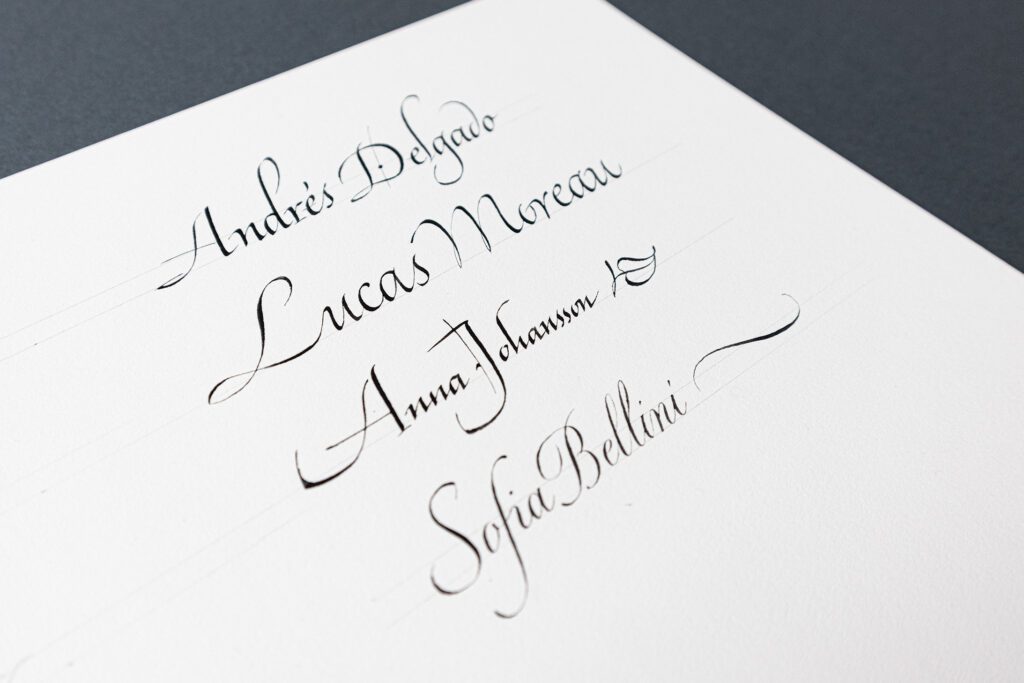 Andrés Delgado
Lucas Moreau
Anna Johansson
Sofia Bellini